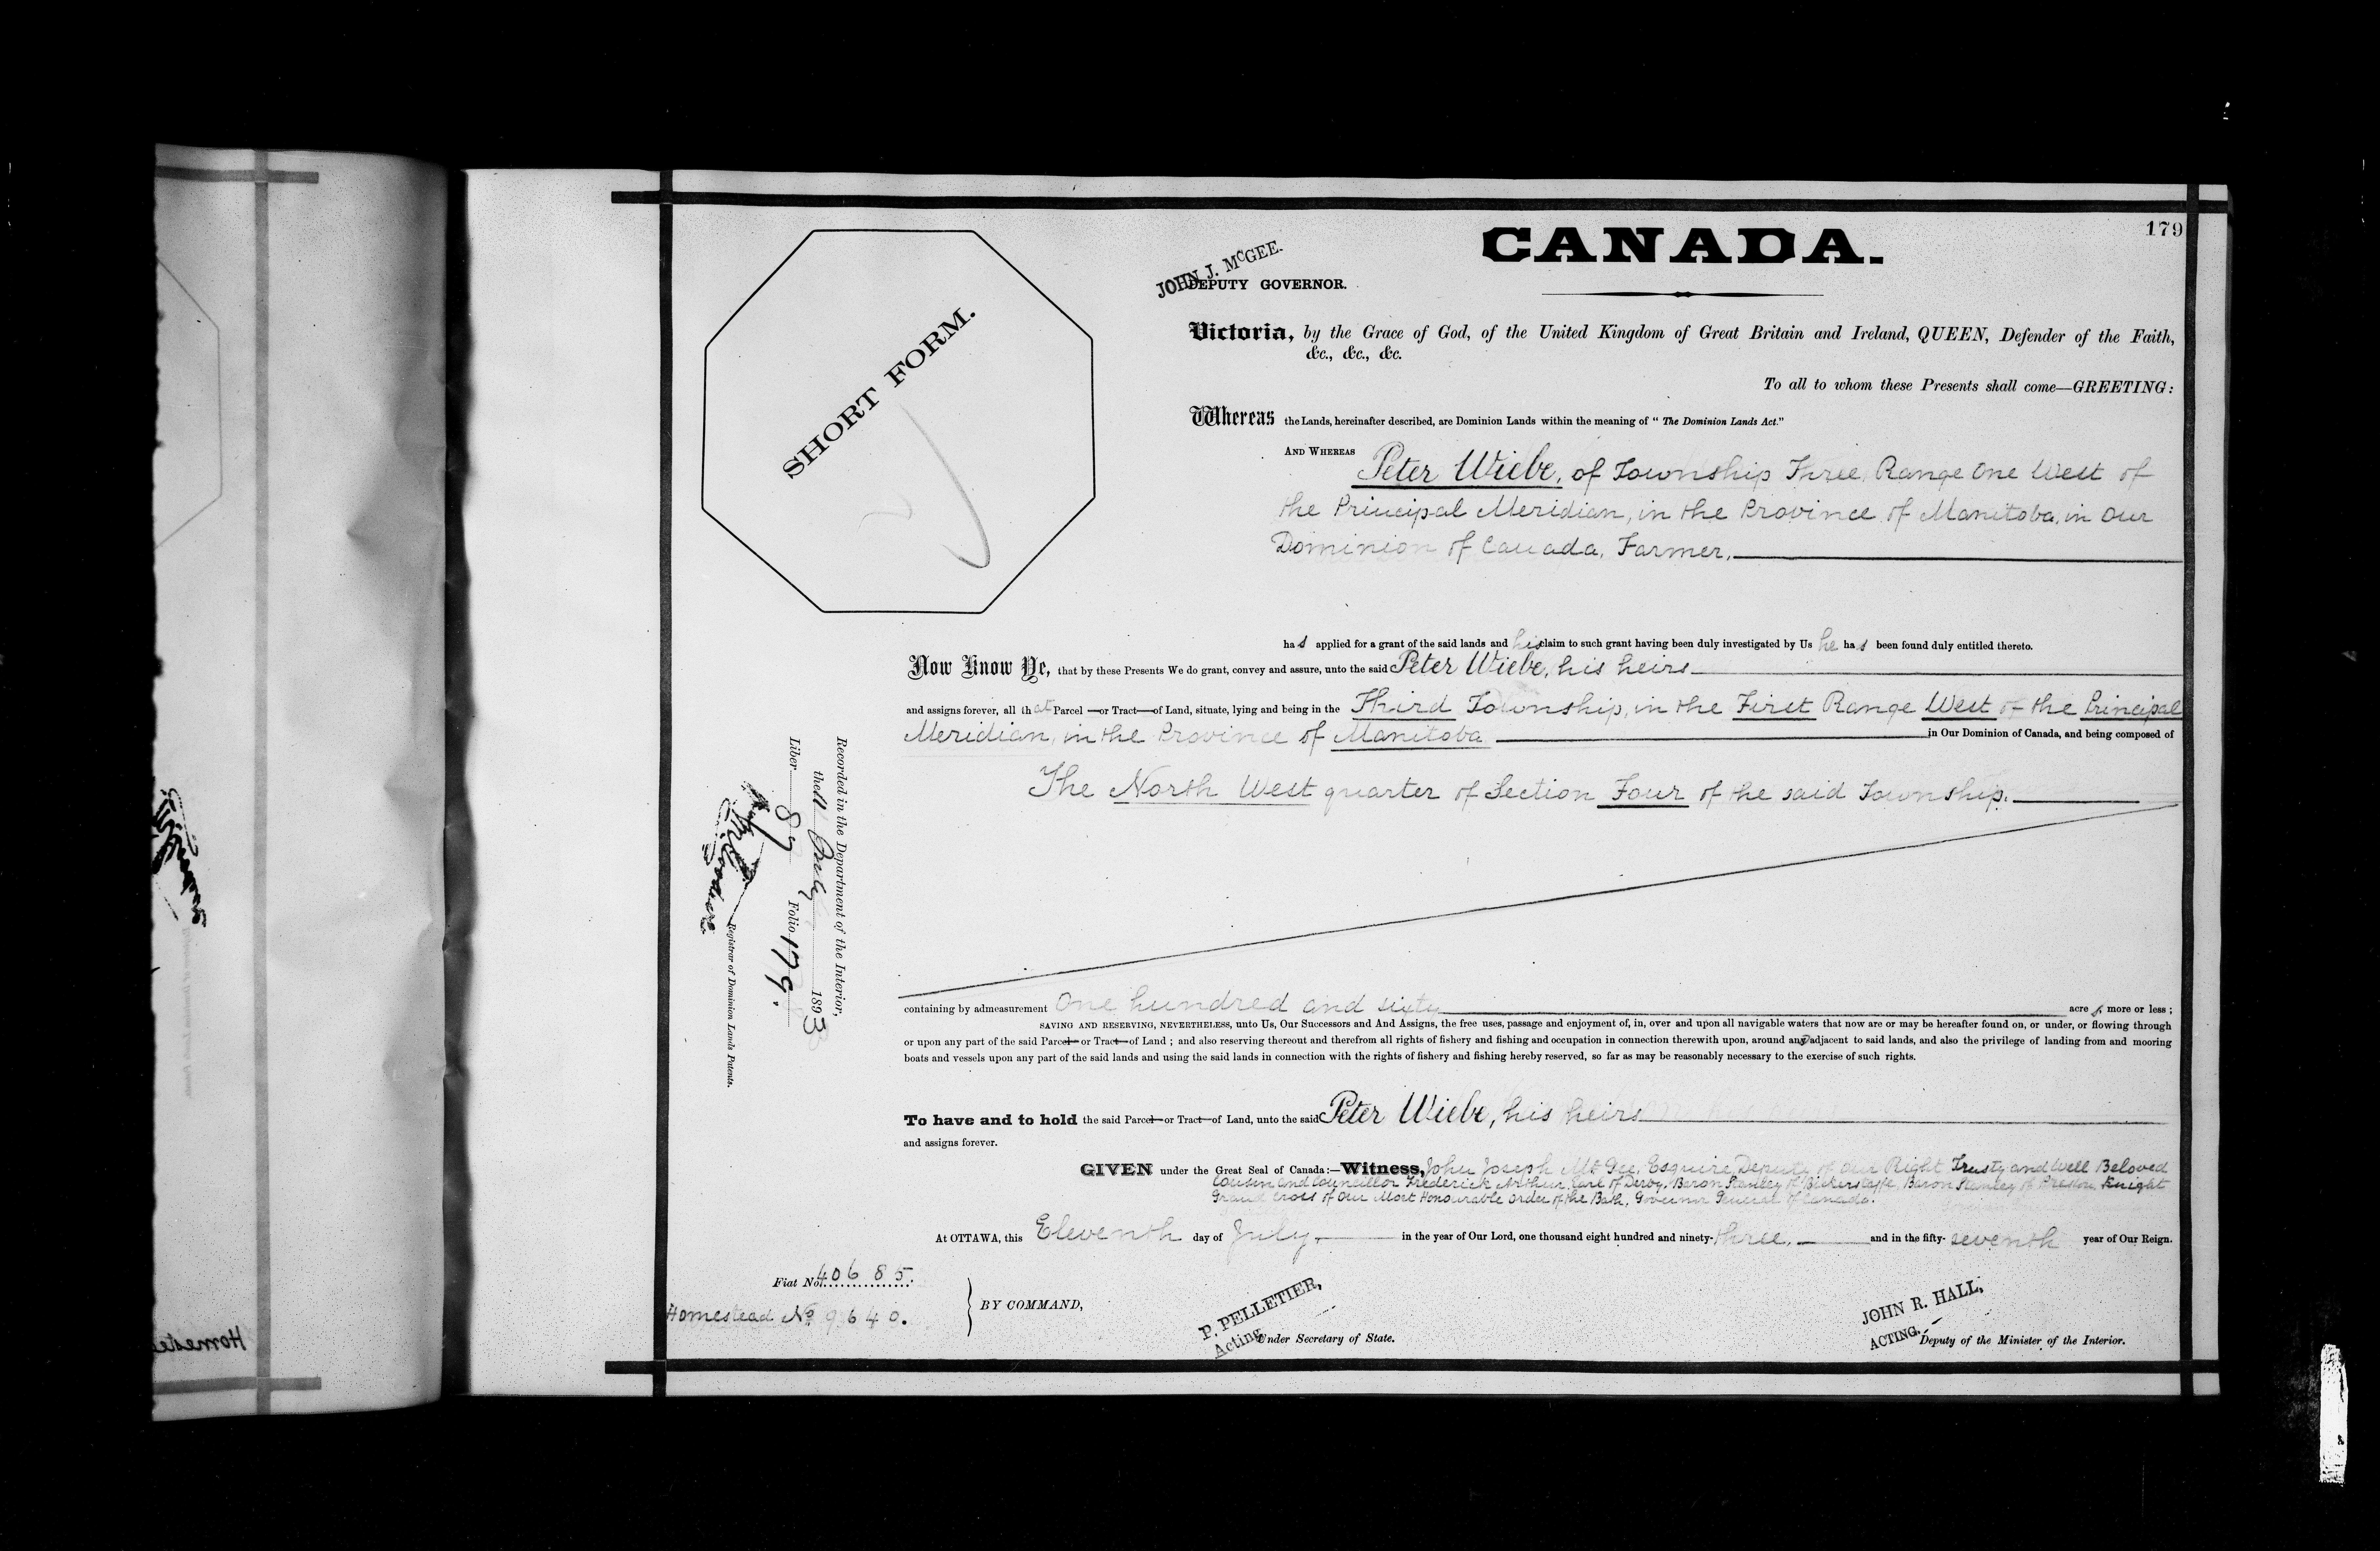 179
CANADA.
JOHN J. McGEE.
DEPUTY GOVERNOR.
SHORT FORM.
Victoria, by the Grace of God, of the United Kingdom of Great Britain and Ireland, QUEEN, Defender of the Faith,
&c., &c., &c.
To all to whom these Presents shall come—GREETING:
Whereas the Lands, hereinafter described, are Dominion Lands within the meaning of "The Dominion Lands Act."
AND WHEREAS Peter Wiebe, of Township Three, Range One West of
the Principal Meridian, in the Province of Manitoba, in Our
Dominion of Canada, Farmer,
has applied for a grant of the said lands and his claim to such grant having been duly investigated by Us he has been found duly entitled thereto.
Now Know Ye, that by these Presents We do grant, convey and assure, unto the said Peter Wiebe, his heirs
and assigns forever, all that Parcel —or Tract—of Land, situate, lying and being in the Third Township, in the First Range West of the Principal
Meridian, in the Province of Manitoba in Our Dominion of Canada, and being composed of
The North West quarter of Section Four of the said Township.
Recorded in the Department of the Interior,
the 11 July 1893
Liber 89 Folio 179.
Registrar of Dominion Lands Patents.
containing by admeasurement One hundred and sixty acres, more or less;
SAVING AND RESERVING, NEVERTHELESS, unto Us, Our Successors and And Assigns, the free uses, passage and enjoyment of, in, over and upon all navigable waters that now are or may be hereafter found on, or under, or flowing through
or upon any part of the said Parcel—or Tract—of Land; and also reserving thereout and therefrom all rights of fishery and fishing and occupation in connection therewith upon, around and adjacent to said lands, and also the privilege of landing from and mooring
boats and vessels upon any part of the said lands and using the said lands in connection with the rights of fishery and fishing hereby reserved, so far as may be reasonably necessary to the exercise of such rights.
To have and to hold the said Parcel—or Tract—of Land, unto the said Peter Wiebe, his heirs
and assigns forever.
GIVEN under the Great Seal of Canada:—Witness, John Joseph McGee, Esquire, Deputy of Our Right Trusty and Well Beloved
Cousin and Councillor Frederick Arthur, Earl of Derby, Baron Stanley of Bickerstaffe, Baron Stanley of Preston, Knight
Grand Cross of Our Most Honourable Order of the Bath, Governor General of Canada.
At OTTAWA, this Eleventh day of July, in the year of Our Lord, one thousand eight hundred and ninety-three, and in the fifty-seventh year of Our Reign.
Fiat No. 40685.
Homestead No. 9640.
BY COMMAND,
P. PELLETIER,
Acting Under Secretary of State.
JOHN R. HALL,
ACTING. Deputy of the Minister of the Interior.
Homeste